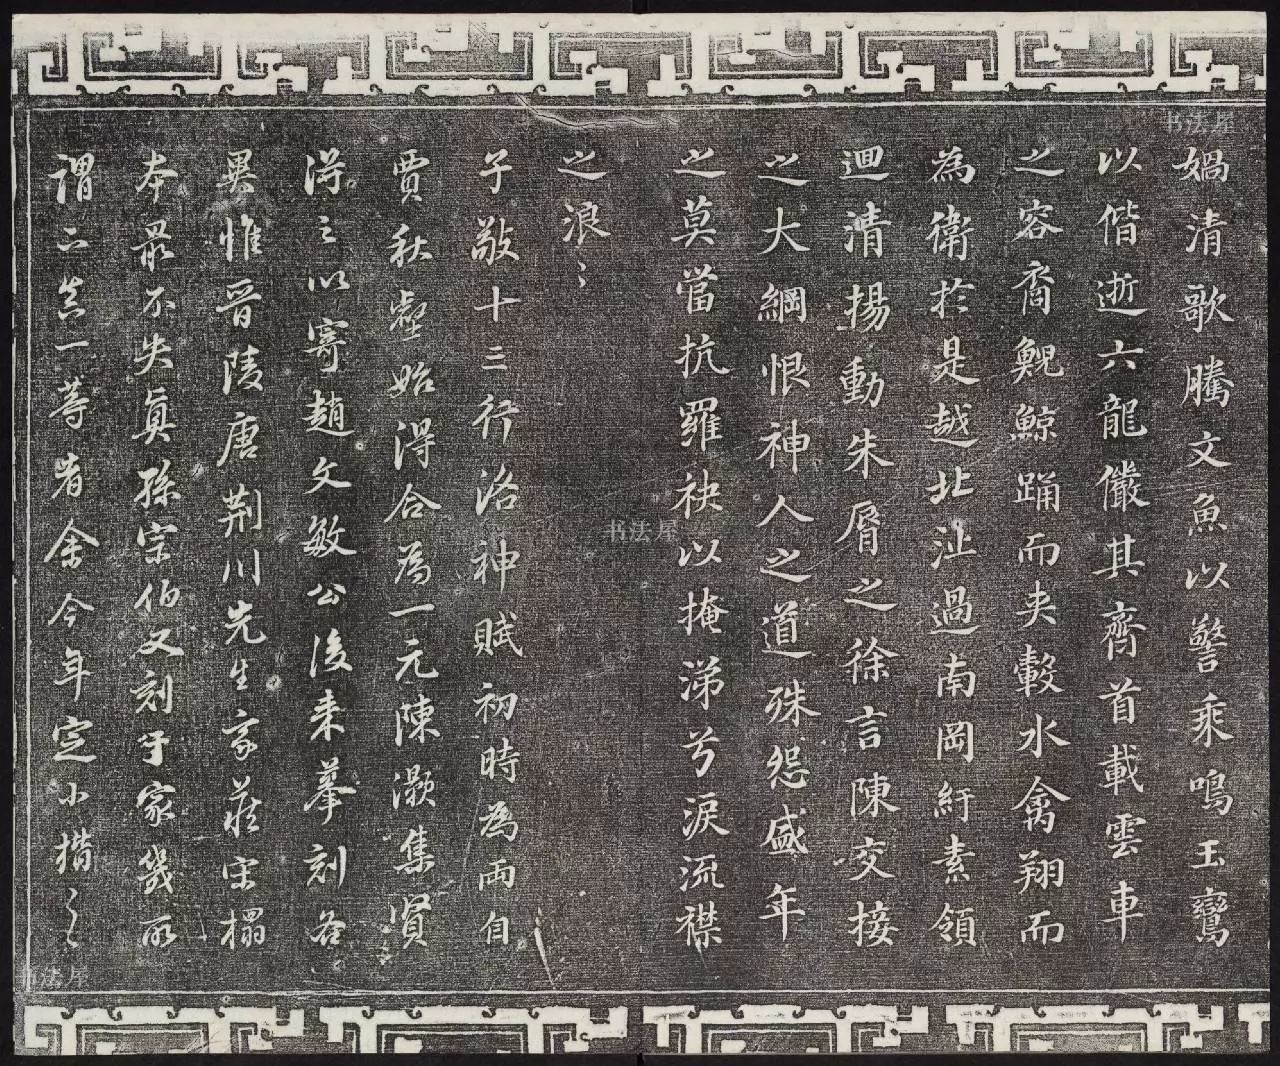 媧清歌騰文魚以警乘鳴玉鸞
以偕逝六龍儼其齊首載雲車
之容裔鯢鯨踊而夾轂水禽翔而
為衛於是越北沚過南岡紆素領
迴清揚動朱脣之徐言陳交接
之大綱恨神人之道殊怨盛年
之莫當抗羅袂以掩涕兮淚流襟
之浪〻
子敬十三行洛神賦初時為兩自
賈秋壑始得合為一元陳灝集賢
得之以寄趙文敏公後來摹刻各
異惟晉陵唐荊川先生家藏宋搨
本最不失真孫宗伯又刻于家幾所
謂下真一等者余今年定小楷之
书法屋
书法屋
书法屋